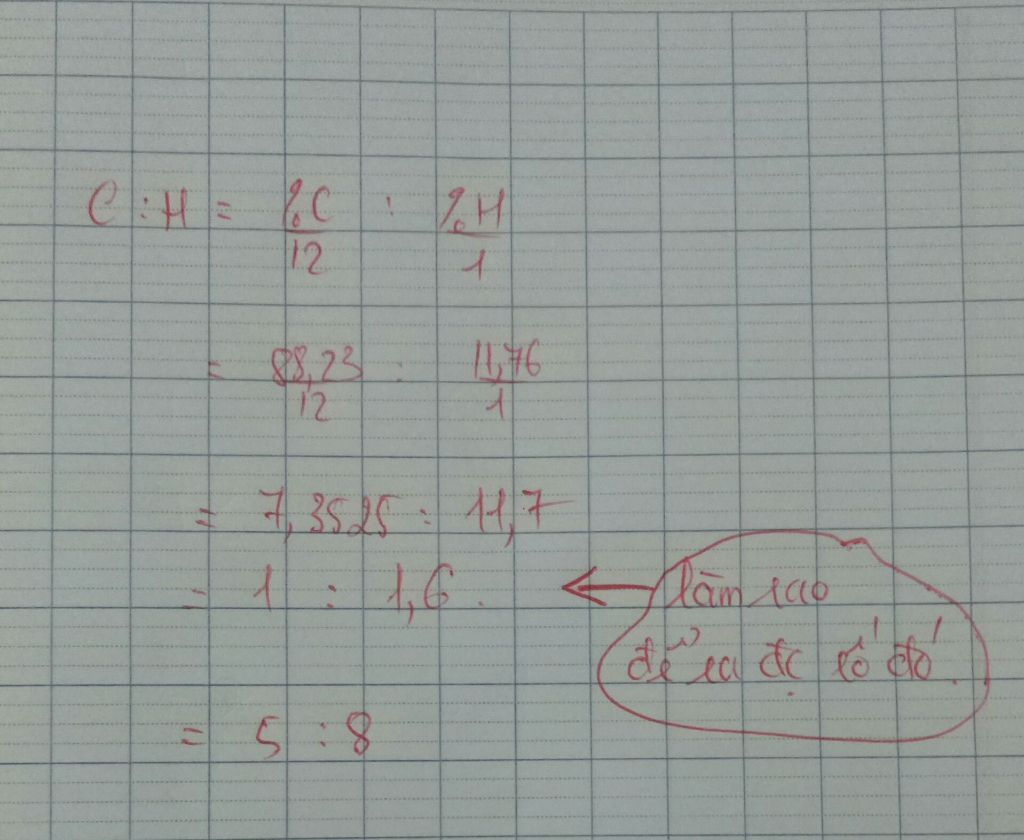 C : H = %C/12 : %H/1
= 88,23/12 : 11,76/1
= 7,3525 : 11,7
= 1 : 1,6. ← làm sao
để ra đc số đó.
= 5 : 8